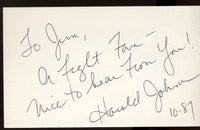 To Jim,
A Fight Fan -
Nice to hear from you!
Harold Johnson
10-87